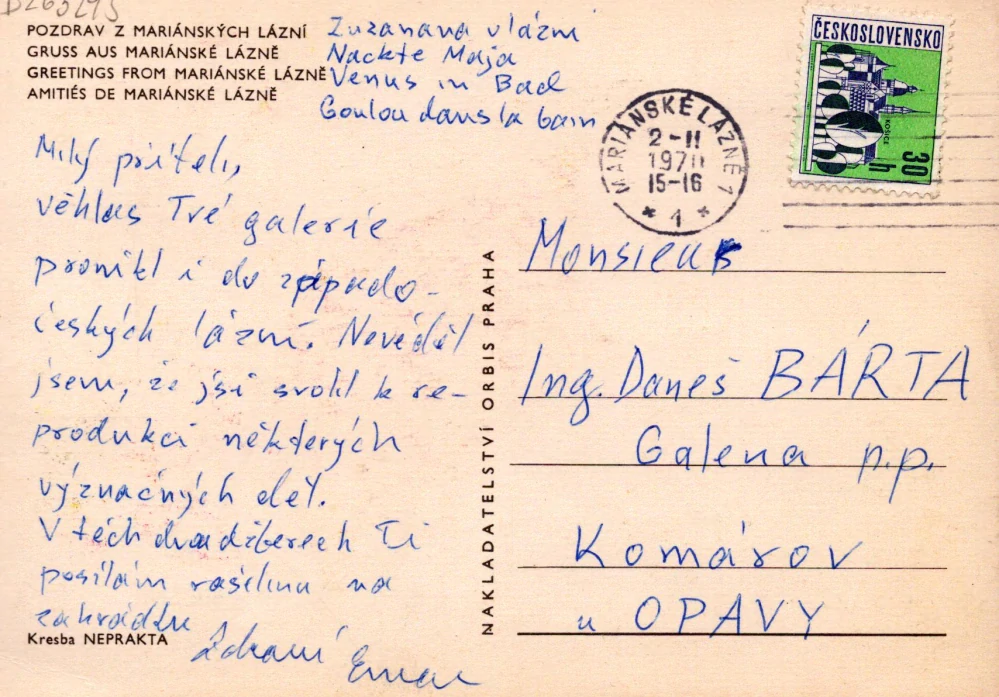 POZDRAV Z MARIÁNSKÝCH LÁZNÍ
GRUSS AUS MARIÁNSKÉ LÁZNĚ
GREETINGS FROM MARIÁNSKÉ LÁZNĚ
AMITIÉS DE MARIÁNSKÉ LÁZNĚ
Zuzanana v lázni
Nackte Maja
Venus in Bad
Goulou dans la bain
Milý příteli,
věhlas Tvé galerie
pronikl i do západo-
českých lázní. Nevěděl
jsem, že jsi svolil k re-
produkci některých
význačných děl.
V těch dvou džberech Ti
posílám rašelinu na
zahrádku
Zdraví
Kresba NEPRAKTA
NAKLADATELSTVÍ ORBIS PRAHA
MARIÁNSKÉ LÁZNĚ 1
2-II
1970
15-16
* 1 *
ČESKOSLOVENSKO
KOŠICE
30 h
Monsieur
Ing. Daneš BÁRTA
Galena n.p.
Komárov
u OPAVY